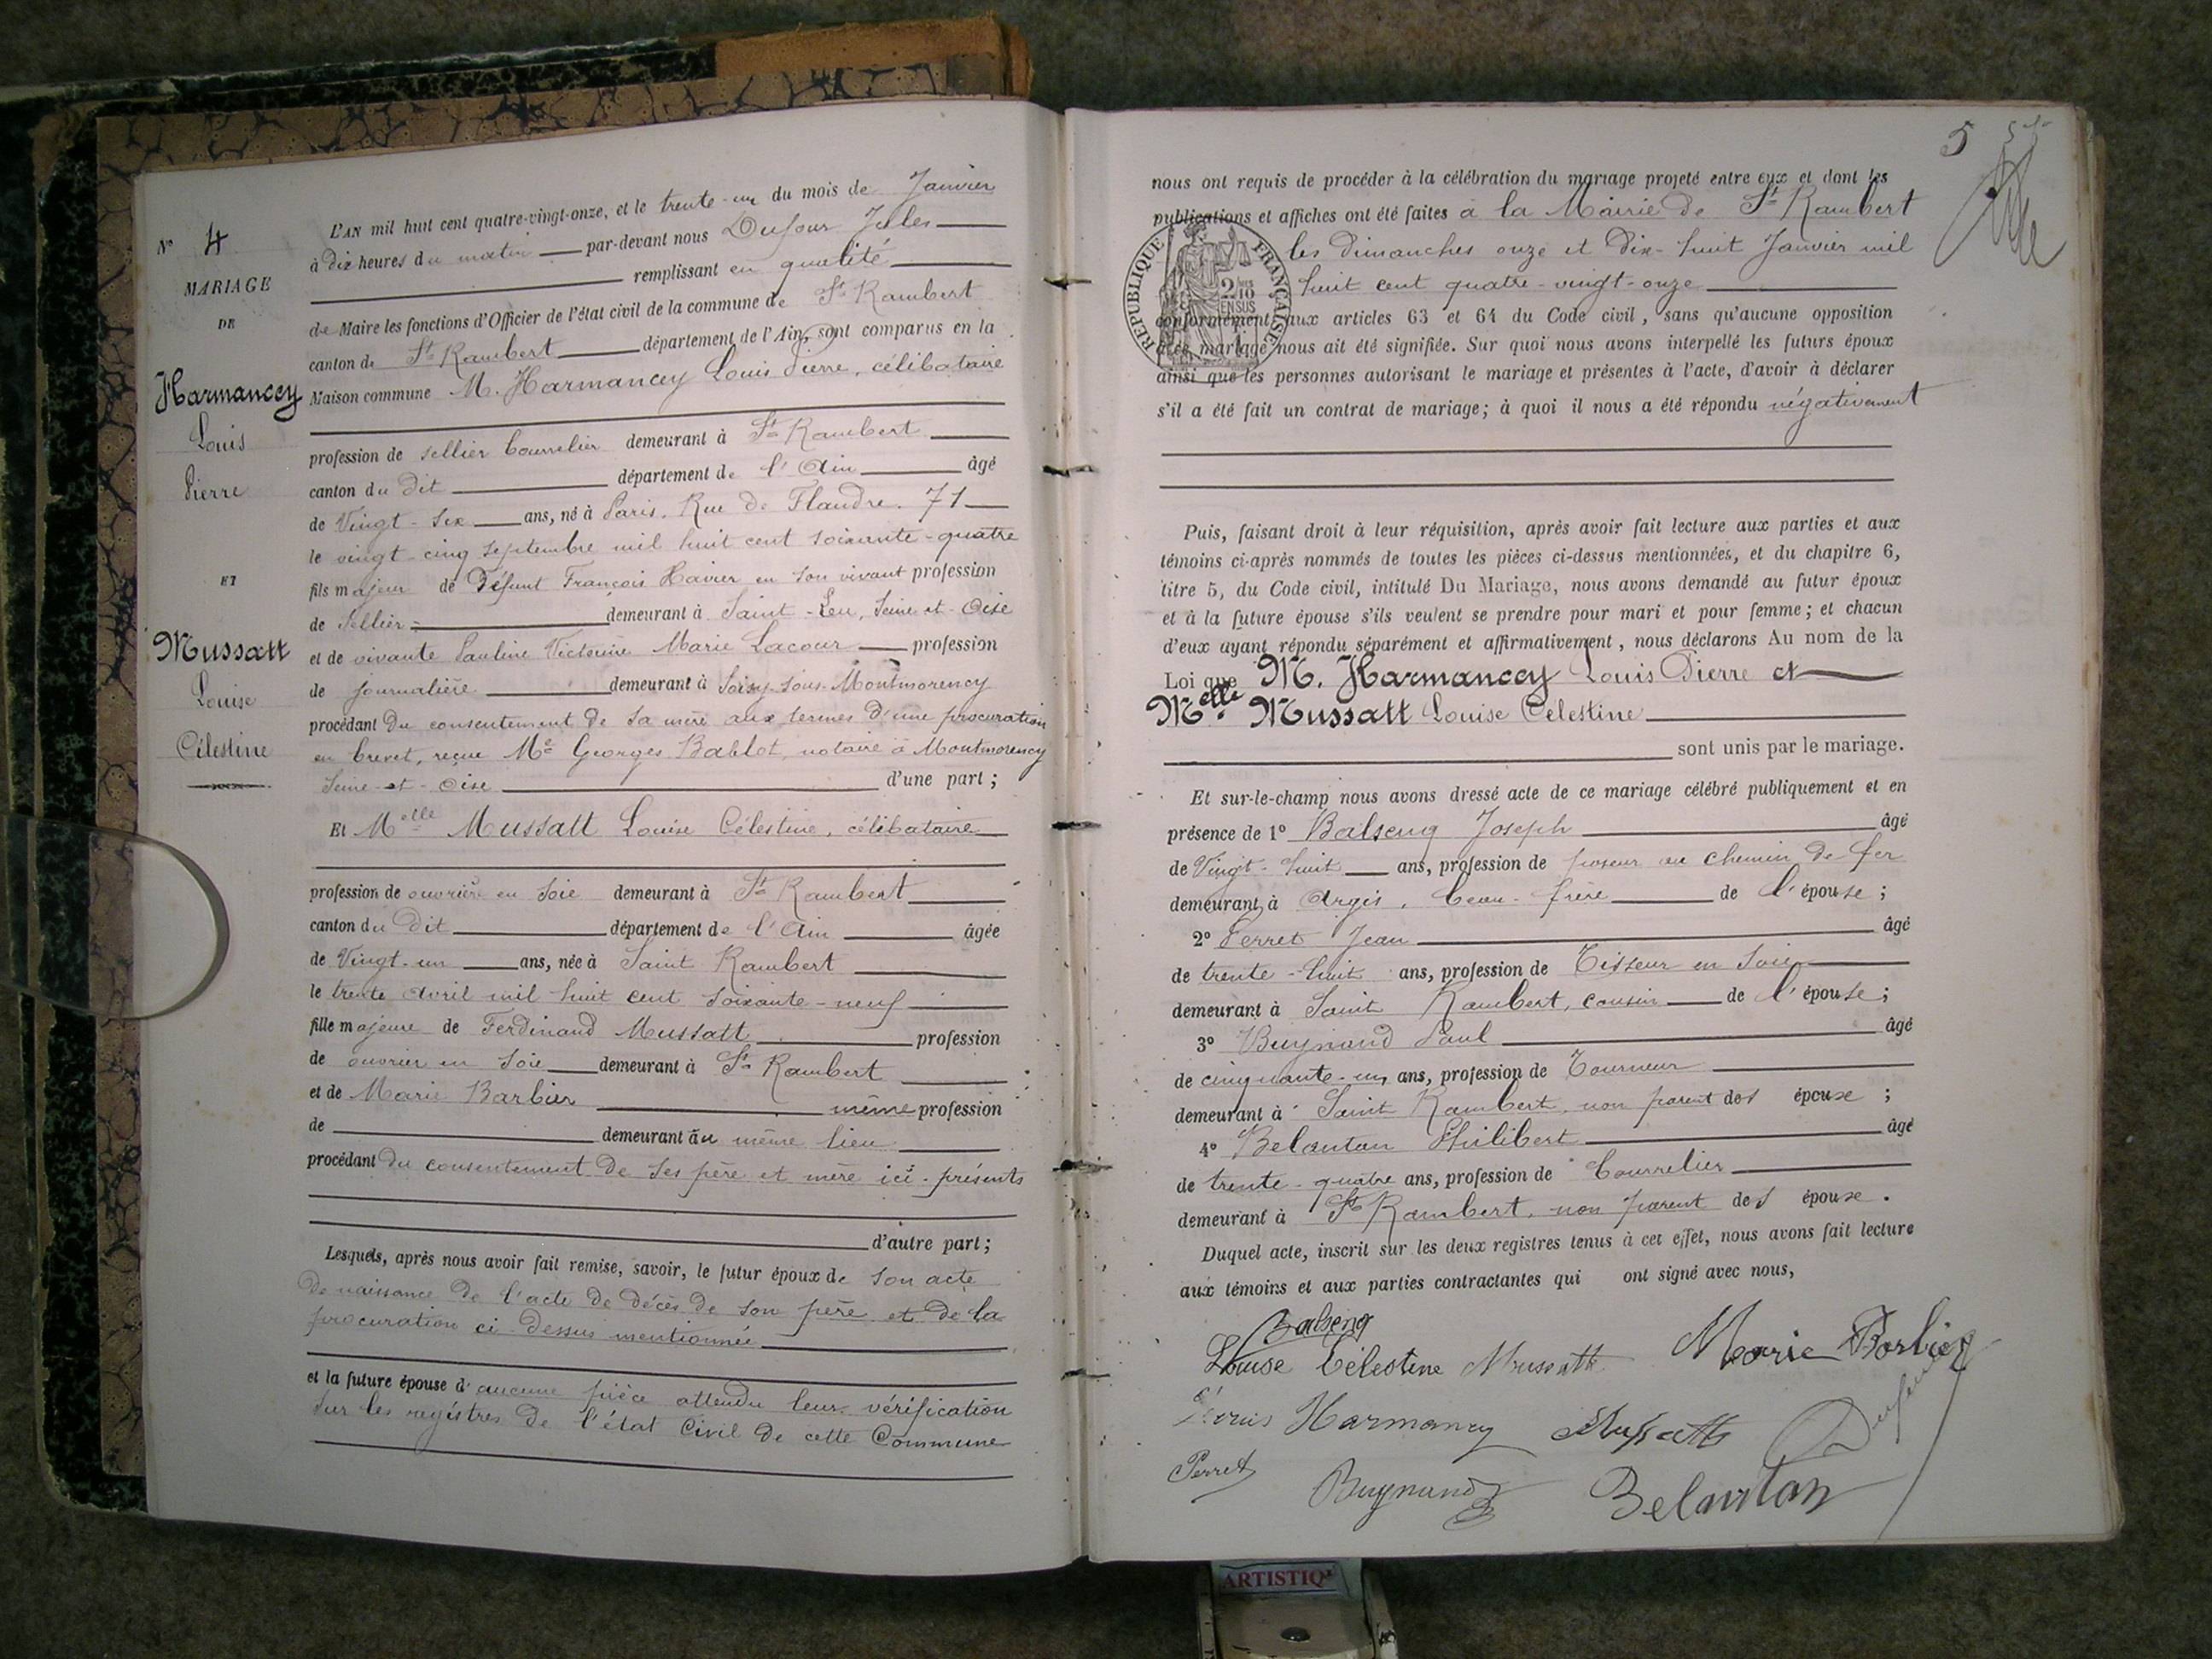 N° 4
MARIAGE
DE
Harmancey
Louis
Pierre
ET
Mussatt
Louise
Célestine
L'AN mil huit cent quatre-vingt-onze, et le trente-un du mois de Janvier
à dix heures du matin par-devant nous Dufour Jules
remplissant en qualité
de Maire les fonctions d'Officier de l'état civil de la commune de St Rambert
canton de St Rambert département de l'Ain, sont comparus en la
Maison commune M. Harmancey Louis Pierre, célibataire
profession de sellier bourrelier demeurant à St Rambert
canton du dit département de l'Ain âgé
de Vingt-six ans, né à Paris, Rue de Flandre. 71
le vingt-cinq septembre mil huit cent soixante-quatre
fils majeur de Défunt François Xavier en son vivant profession
de sellier demeurant à Saint-Leu, Seine-et-Oise
et de vivante Pauline Victorine Marie Lacour profession
de journalière demeurant à Soisy-sous-Montmorency
procédant du consentement de sa mère aux termes d'une procuration
en brevet, reçue Me Georges Bablot, notaire à Montmorency
Seine-et-Oise d'une part ;
Et Melle Mussatt Louise Célestine, célibataire
profession de ouvrière en soie demeurant à St Rambert
canton du dit département de l'Ain âgée
de Vingt-un ans, née à Saint Rambert
le trente Avril mil huit cent soixante-neuf
fille majeure de Ferdinand Mussatt profession
de ouvrier en soie demeurant à St Rambert
et de Marie Barbier même profession
de demeurant au même lieu
procédant du consentement de ses père et mère ici-présents
d'autre part ;
Lesquels, après nous avoir fait remise, savoir, le futur époux de son acte
de naissance de l'acte de décès de son père et de la
procuration ci dessus mentionnée
et la future épouse d'aucune pièce attendu leur vérification
sur les registres de l'état Civil de cette Commune
5
nous ont requis de procéder à la célébration du mariage projeté entre eux et dont les
publications et affiches ont été faites à la Mairie de St Rambert
les dimanches onze et dix-huit Janvier mil
huit cent quatre-vingt-onze
conformément aux articles 63 et 64 du Code civil, sans qu'aucune opposition
mariage nous ait été signifiée. Sur quoi nous avons interpellé les futurs époux
ainsi que les personnes autorisant le mariage et présentes à l'acte, d'avoir à déclarer
s'il a été fait un contrat de mariage; à quoi il nous a été répondu négativement
REPUBLIQUE FRANÇAISE
2 10
EN SUS
Puis, faisant droit à leur réquisition, après avoir fait lecture aux parties et aux
témoins ci-après nommés de toutes les pièces ci-dessus mentionnées, et du chapitre 6,
titre 5, du Code civil, intitulé Du Mariage, nous avons demandé au futur époux
et à la future épouse s'ils veulent se prendre pour mari et pour femme; et chacun
d'eux ayant répondu séparément et affirmativement, nous déclarons Au nom de la
Loi que M. Harmancey Louis Pierre et
Melle Mussatt Louise Célestine
sont unis par le mariage.
Et sur-le-champ nous avons dressé acte de ce mariage célébré publiquement et en
présence de 1° Balseng Joseph âgé
de Vingt-huit ans, profession de poseur au chemin de fer
demeurant à Argis, beau-frère de l'épouse ;
2° Perret Jean âgé
de trente-huit ans, profession de Tisseur en soie
demeurant à Saint Rambert, cousin de l'épouse ;
3° Buynand Paul âgé
de cinquante-un ans, profession de Tourneur
demeurant à Saint Rambert, non parent des époux ;
4° Belantan Philibert âgé
de trente-quatre ans, profession de Bourrelier
demeurant à St Rambert, non parent des époux.
Duquel acte, inscrit sur les deux registres tenus à cet effet, nous avons fait lecture
aux témoins et aux parties contractantes qui ont signé avec nous,
Balseng
Louise Célestine Mussatt Marie Barbier
Louis Harmancy Mussatt Dufour
Perret Buynand Belantan
ARTISTIQ